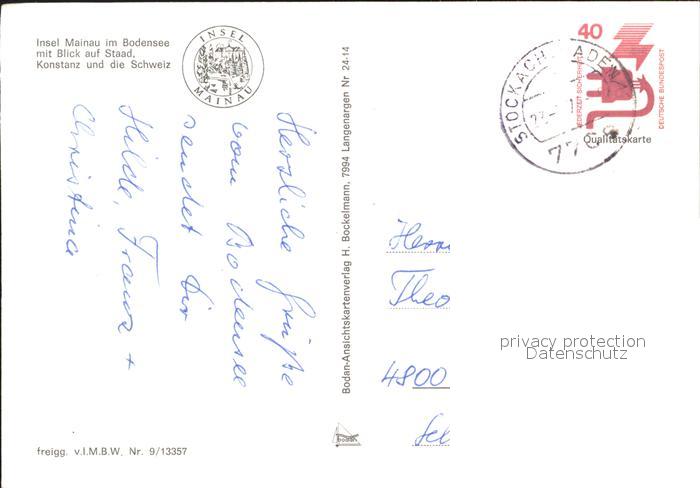 Insel Mainau im Bodensee
mit Blick auf Staad,
Konstanz und die Schweiz
INSEL
MAINAU
Herzliche Grüße
vom Bodensee
sendet Dir
Hilde, Franz +
Christina
freigg. v.I.M.B.W. Nr. 9/13357
Bodan-Ansichtskartenverlag H. Bockelmann, 7994 Langenargen Nr 24-14
bodan
40
JEDERZEIT SICHERHEIT
DEUTSCHE BUNDESPOST
Qualitätskarte
STOCKACH BADEN
776
Herrn
Theo
4800
privacy protection
Datenschutz